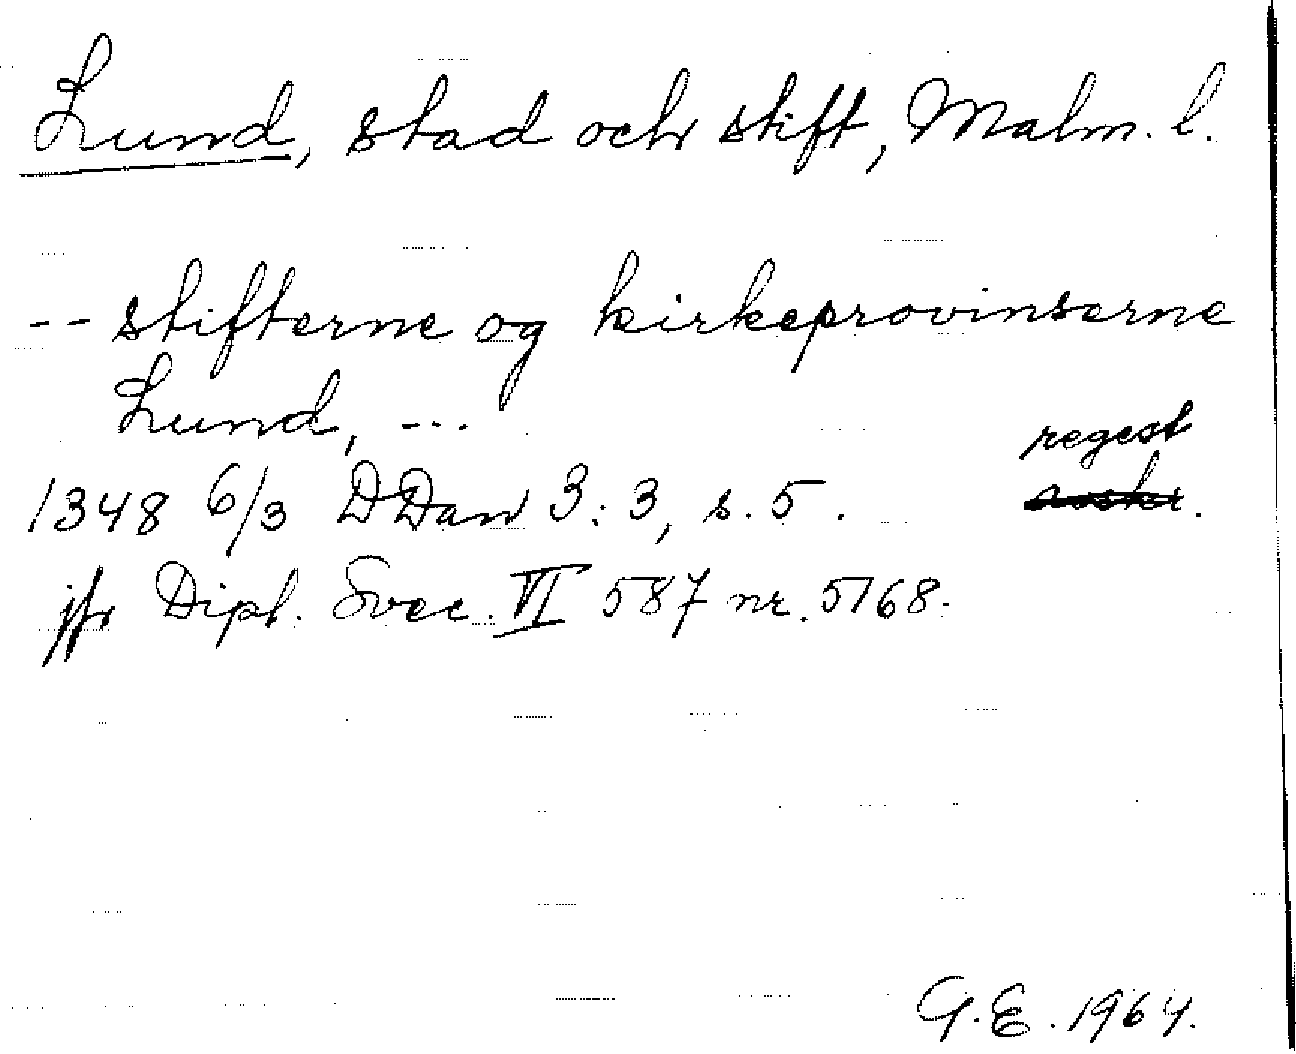 Lund, stad och stift, Malm. l.
-- stifterne og kirkeprovinserne
Lund, ---
regest
1348 6/3 DDan 3:3, s. 5.
jfr Dipl. Svec. VI 587 nr. 5168.
G.E. 1964.